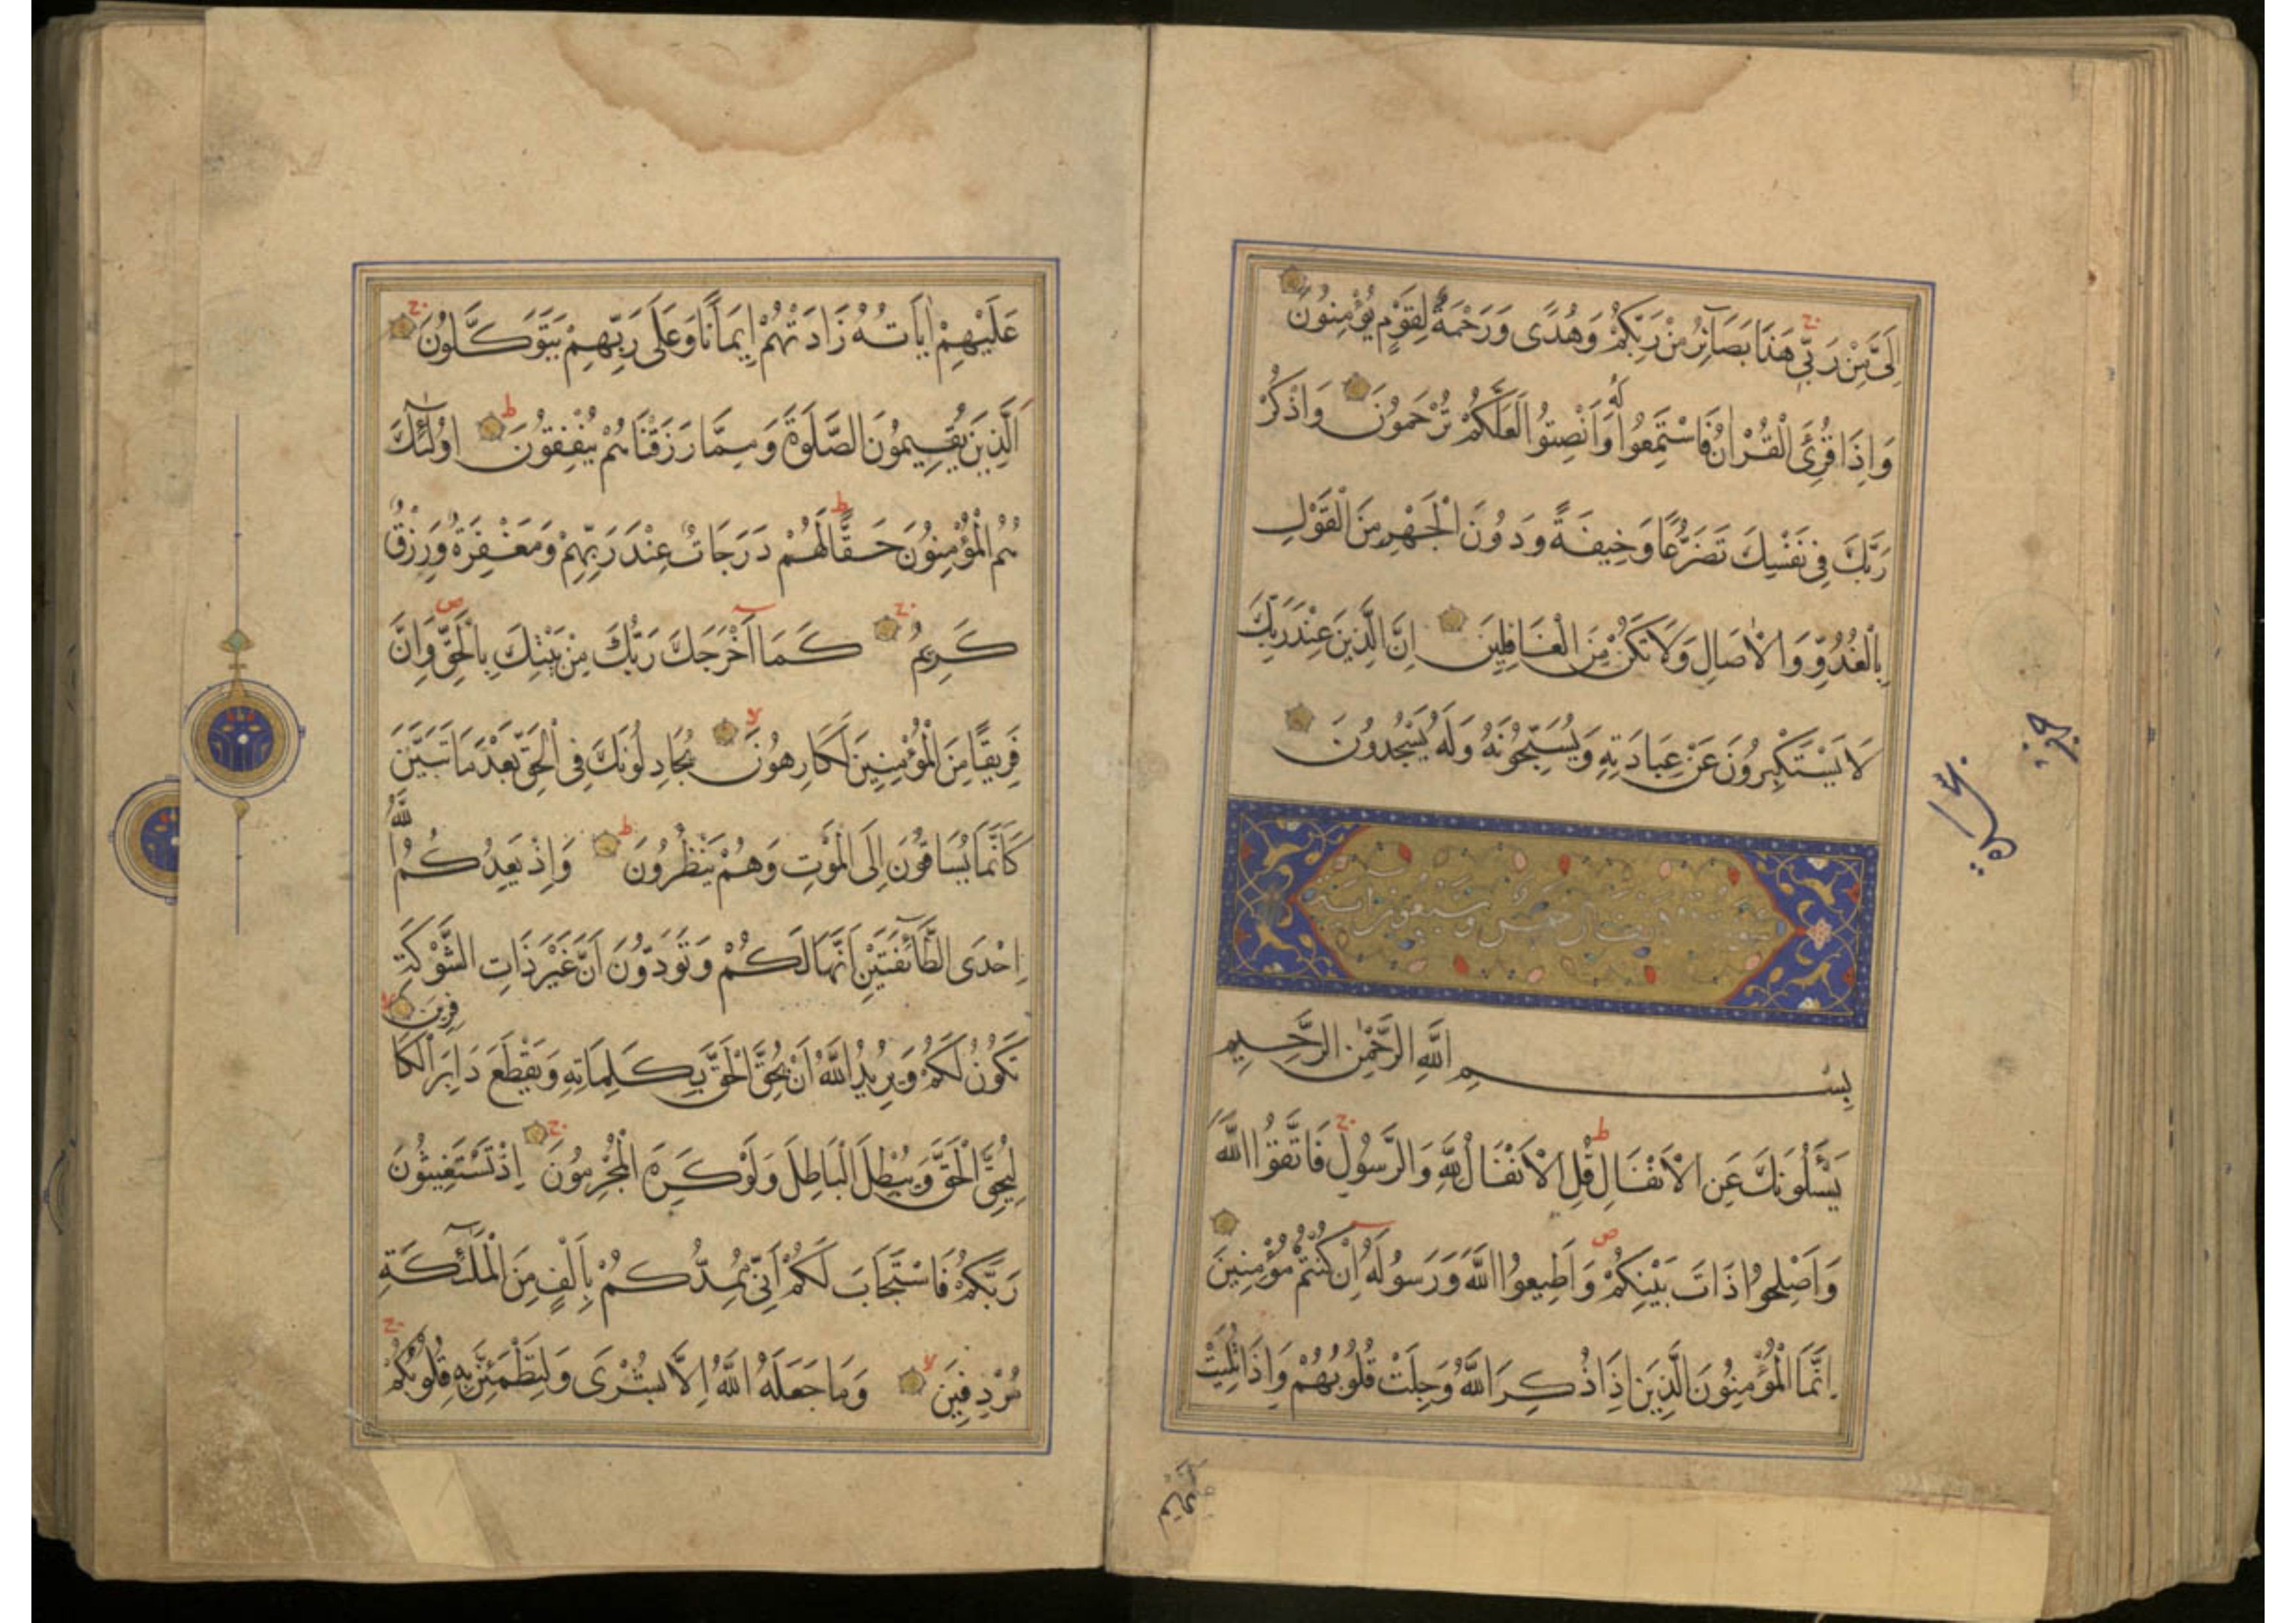 إِلَىَّ مِنْ رَبِّى هَذَا بَصَآئِرُ مِنْ رَبِّكُمْ وَهُدًى وَرَحْمَةٌ لِقَوْمٍ يُؤْمِنُونَ
وَاِذَا قُرِئَ الْقُرْاٰنُ فَاسْتَمِعُوا لَهُ وَاَنْصِتُوا لَعَلَّكُمْ تُرْحَمُونَ وَاذْكُرْ
رَبَّكَ فِى نَفْسِكَ تَضَرُّعًا وَخِيفَةً وَدُونَ الْجَهْرِ مِنَ الْقَوْلِ
بِالْغُدُوِّ وَالْاٰصَالِ وَلَا تَكُنْ مِنَ الْغَافِلِينَ اِنَّ الَّذِينَ عِنْدَ رَبِّكَ
لَا يَسْتَكْبِرُونَ عَنْ عِبَادَتِهِ وَيُسَبِّحُونَهُ وَلَهُ يَسْجُدُونَ
الانفال خمس وسبعون اية
بِسْمِ اللَّهِ الرَّحْمٰنِ الرَّحِيمِ
يَسْأَلُونَكَ عَنِ الْاَنْفَالِ ط قُلِ الْاَنْفَالُ لِلَّهِ وَالرَّسُولِ ج فَاتَّقُوا اللَّهَ
وَاَصْلِحُوا ذَاتَ بَيْنِكُمْ ص وَاَطِيعُوا اللَّهَ وَرَسُولَهُ اِنْ كُنْتُمْ مُؤْمِنِينَ
اِنَّمَا الْمُؤْمِنُونَ الَّذِينَ اِذَا ذُكِرَ اللَّهُ وَجِلَتْ قُلُوبُهُمْ وَاِذَا تُلِيَتْ
عَلَيْهِمْ اٰيَاتُهُ زَادَتْهُمْ اِيمَانًا وَعَلَى رَبِّهِمْ يَتَوَكَّلُونَ ج
اَلَّذِينَ يُقِيمُونَ الصَّلَوةَ وَمِمَّا رَزَقْنَاهُمْ يُنْفِقُونَ ط اُولٰٓئِكَ
هُمُ الْمُؤْمِنُونَ حَقًّا ط لَهُمْ دَرَجَاتٌ عِنْدَ رَبِّهِمْ وَمَغْفِرَةٌ وَرِزْقٌ
كَرِيمٌ ج كَمَآ اَخْرَجَكَ رَبُّكَ مِنْ بَيْتِكَ بِالْحَقِّ ص وَاِنَّ
فَرِيقًا مِنَ الْمُؤْمِنِينَ لَكَارِهُونَ لا يُجَادِلُونَكَ فِى الْحَقِّ بَعْدَ مَا تَبَيَّنَ
كَاَنَّمَا يُسَاقُونَ اِلَى الْمَوْتِ وَهُمْ يَنْظُرُونَ ط وَاِذْ يَعِدُكُمُ اللَّهُ
اِحْدَى الطَّآئِفَتَيْنِ اَنَّهَا لَكُمْ وَتَوَدُّونَ اَنَّ غَيْرَ ذَاتِ الشَّوْكَةِ
تَكُونُ لَكُمْ وَيُرِيدُ اللَّهُ اَنْ يُحِقَّ الْحَقَّ بِكَلِمَاتِهِ وَيَقْطَعَ دَابِرَ الْكَافِرِينَ لا
لِيُحِقَّ الْحَقَّ وَيُبْطِلَ الْبَاطِلَ وَلَوْ كَرِهَ الْمُجْرِمُونَ ج اِذْ تَسْتَغِيثُونَ
رَبَّكُمْ فَاسْتَجَابَ لَكُمْ اَنِّى مُمِدُّكُمْ بِاَلْفٍ مِنَ الْمَلٰٓئِكَةِ
مُرْدِفِينَ لا وَمَا جَعَلَهُ اللَّهُ اِلَّا بُشْرَى وَلِتَطْمَئِنَّ بِهِ قُلُوبُكُمْ ج